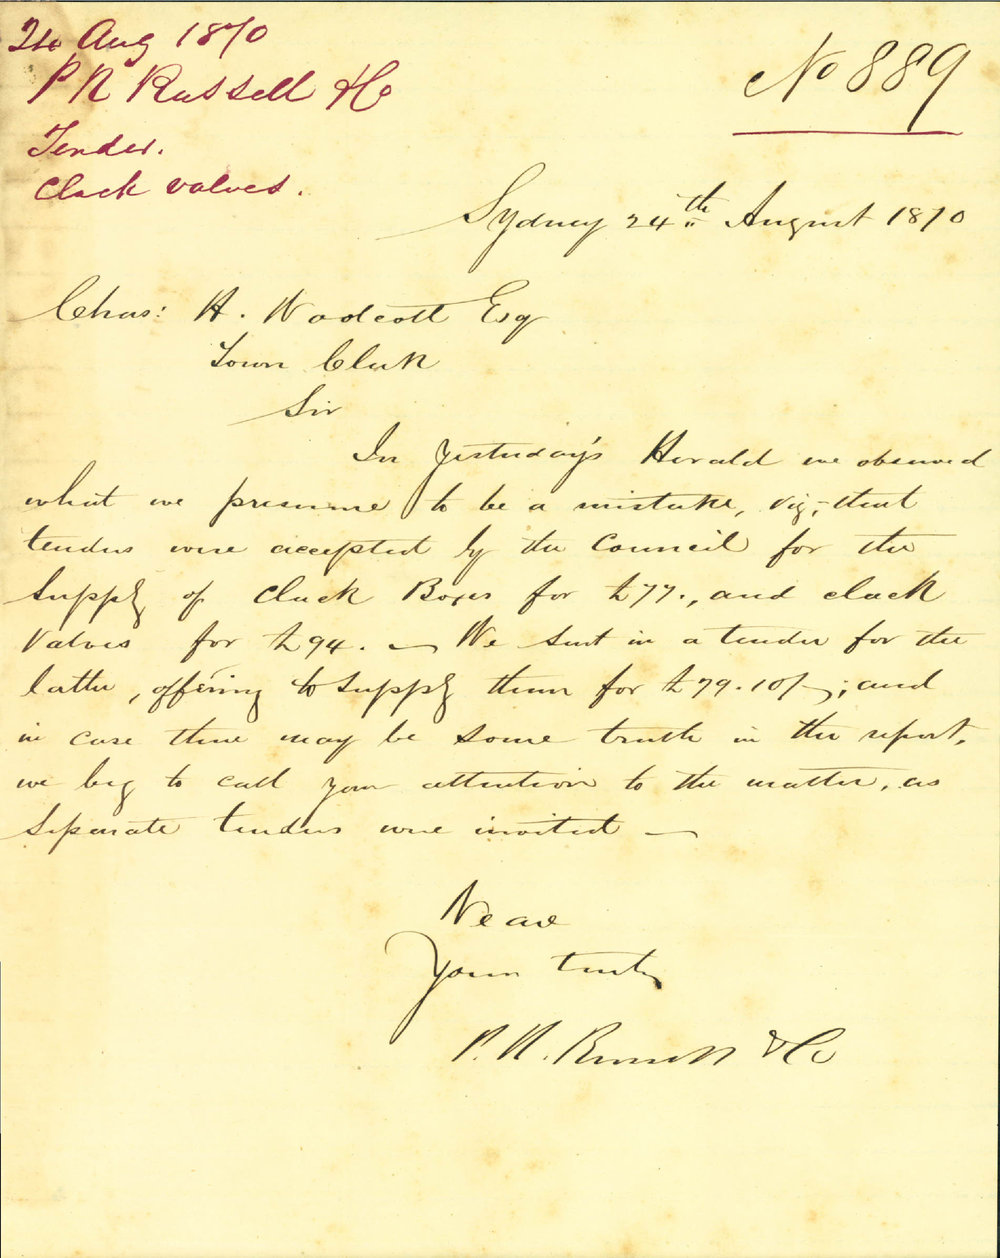 24 Aug 1870
P N Russell & Co
Tender.
Clack valves.
No 889
Sydney 24th August 1870
Chas: H. Woolcott Esq
Town Clerk
Sir
In yesterday's Herald we observed
what we presume to be a mistake, viz; that
tenders were accepted by the Council for the
supply of Clack Boxes for £77., and clack
valves for £94. — We sent in a tender for the
latter, offering to supply them for £79.10/-; and
in case there may be some truth in the report,
we beg to call your attention to the matter, as
separate tenders were invited —
We are
Yours truly
P. N. Russell & Co